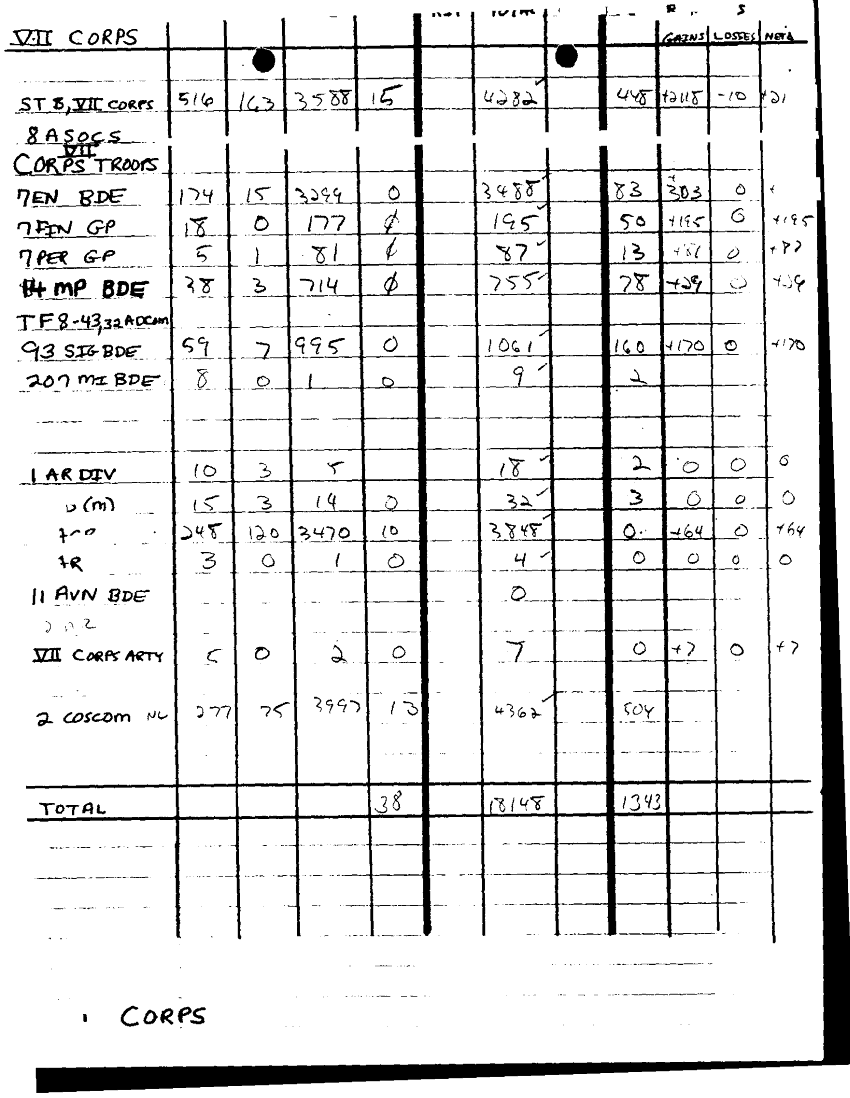 TOTAL R S
VII CORPS GAINS LOSSES NET
STB, VII CORPS 516 163 3588 15 4282✓ 448 +2118 -10 +21
8 ASOCS
VII
CORPS TROOPS
7EN BDE 174 15 3299 0 3488✓ 83 +303 0 +
7 FIN GP 18 0 177 ∅ 195✓ 50 +195 0 +195
7 PER GP 5 1 81 87✓ 13 0 +87
14 MP BDE 38 3 714 ∅ 755✓ 78 +29 0 +29
TF 8-43, 32 ADCOM
93 SIG BDE 59 7 995 0 1061✓ 160 +170 0 +170
207 MI BDE 8 0 1 0 9✓ 2
1 AR DIV 10 3 5 18✓ 2 0 0 0
(M) 15 3 14 0 32✓ 3 0 0 0
248 120 3470 10 3848✓ 0 +64 0 +64
3 0 1 0 4✓ 0 0 0 0
11 AVN BDE 0
VII CORPS ARTY 5 0 2 0 7 0 +7 0 +7
2 COSCOM 277 75 3997 13 4362✓ 504
TOTAL 38 18148 1343
CORPS